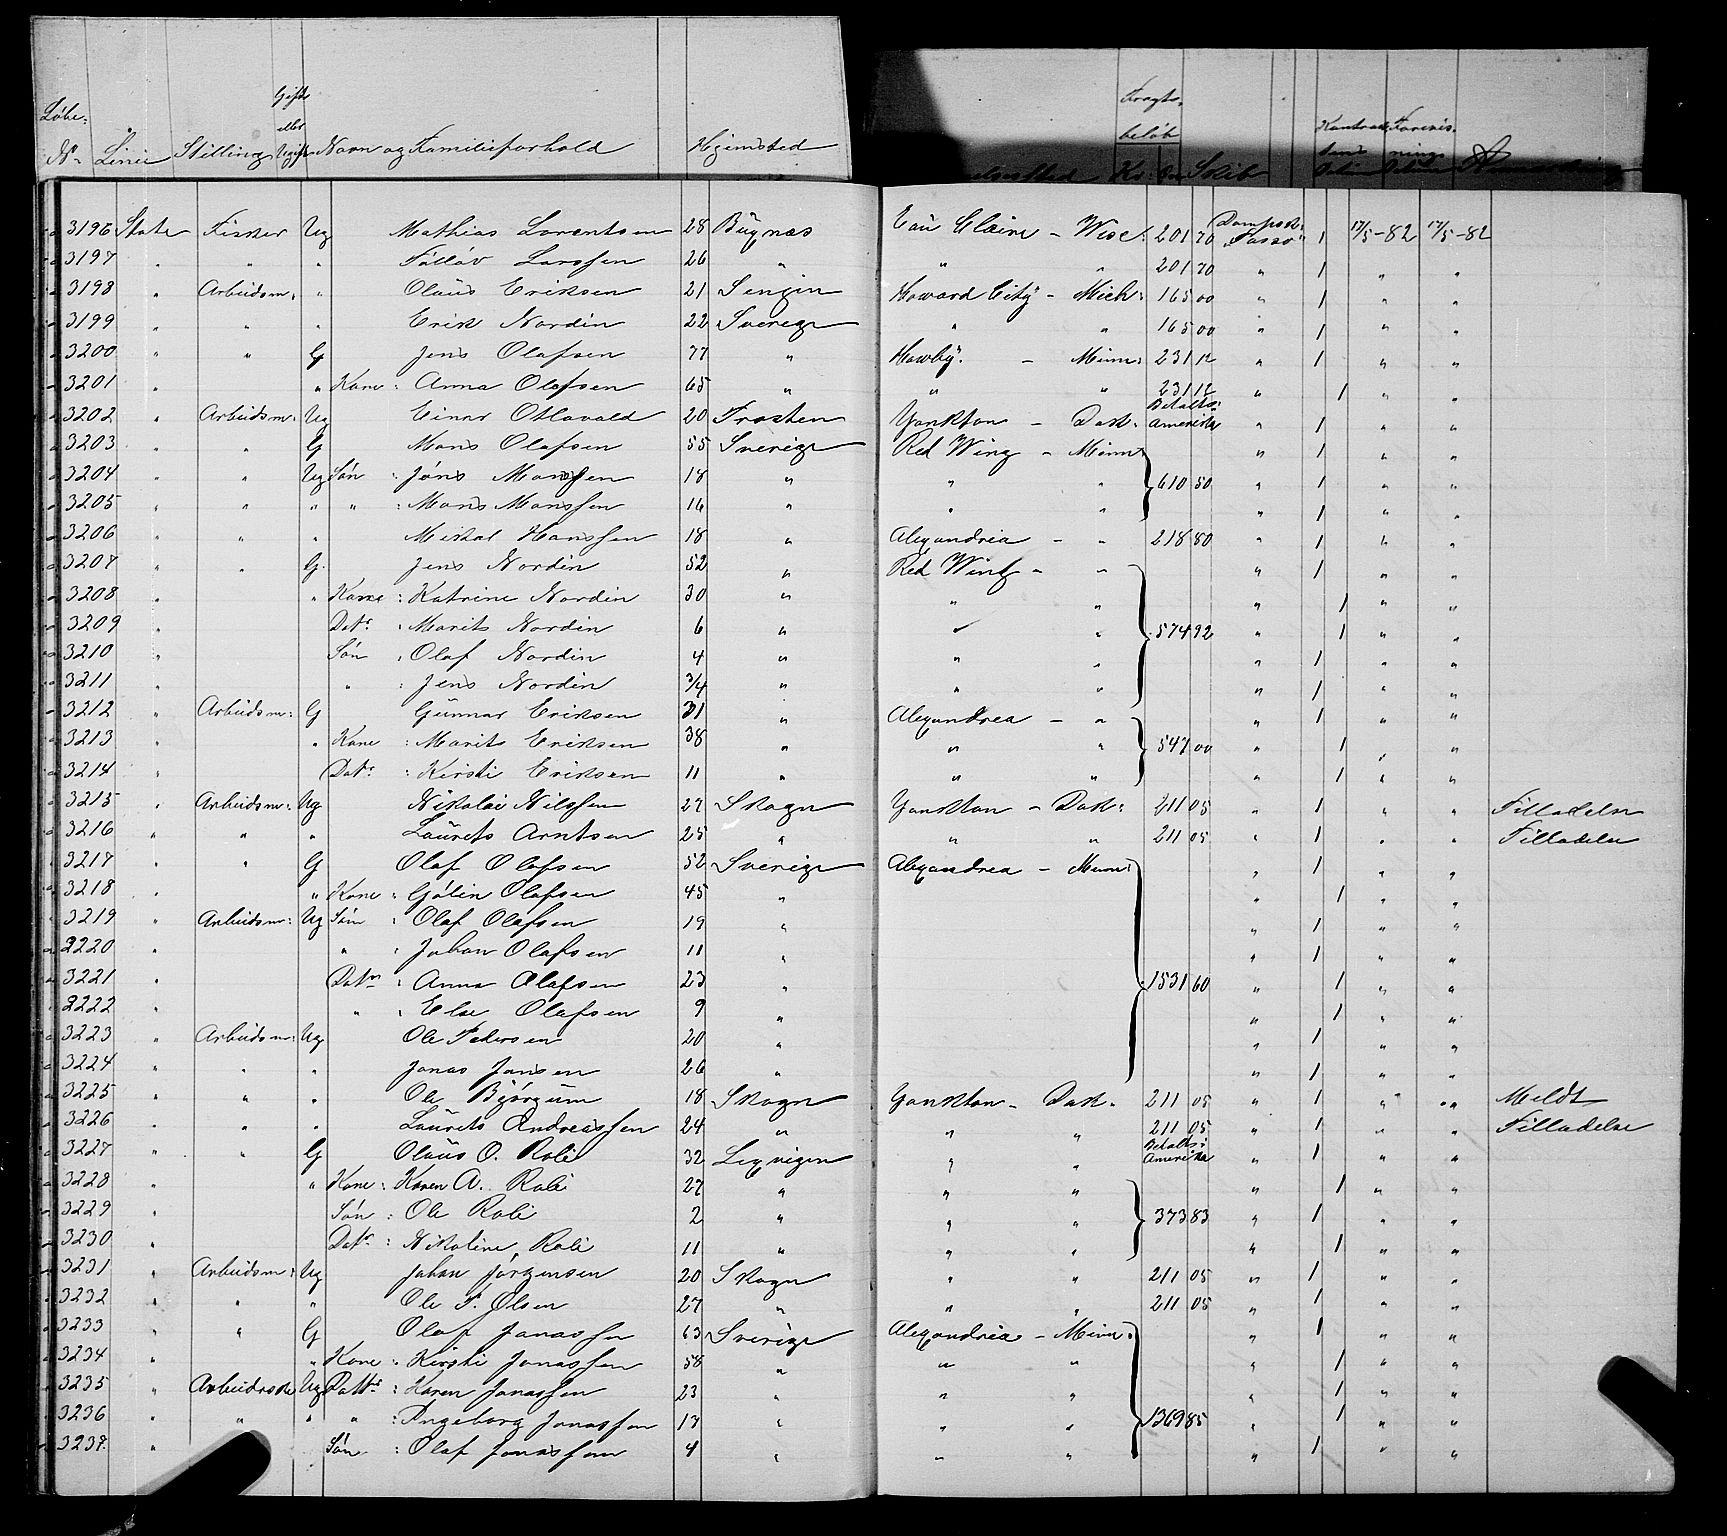 Løbe- Gifte eller Fragts- Kontrak- Forevis-
beløb
No Linie Stilling Ugift Navn og Familieforhold Hjemsted Kr. Øre Skib
3196 State Fisker Ug Mathias Larentsen 28 Bugnæs Eau Claire - Wisc. 201 70 Dampsk. "Tasso" 1 17/5-82 17/5-82
3197 " " " Larssen 26 " " " 201 70 " 1 " "
3198 " Arbeidsm: " Olaus Eriksen 21 Howard City - Mich: 165 00 " 1 " "
3199 " " " Erik Nordin 22 Sverige " " 165 00 " 1 " "
3200 " " G Jens Olafsen 77 " - Minn: 231 12 " 1 " "
3201 " " Kone : Anna Olafsen 65 " " " 231 12 " 1 " "
3202 " Arbeidsm: Ug Einar 20 Frosten Yankton - Dak. Betalts: Amerika " 1 " "
3203 " " G Mons Olafsen 55 Sverige Red Wing - Minn " 1 " "
3204 " " Ug Søn : Jøns Monsen 18 " " " 610 50 " 1 " "
3205 " " " " : Mons Monssen 16 " " " " 1 " "
3206 " " " Mikal Hanssen 18 " Alexandria - " 218 80 " 1 " "
3207 " " G. Jens Nordin 52 " Red Wing - " " 1 " "
3208 " " Kone : Katrine Nordin 30 " " " " 1 " "
3209 " Datr : Marits Nordin 6 " " " 574 92 " 1 " "
3210 " Søn : Olaf Nordin 4 " " " " 1 " "
3211 " " : Jens Nordin 3/4 " " " " 1 " "
3212 " Arbeidsm: G Gunnar Eriksen 31 " Alexandrea - " " 1 " "
3213 " " Kone : Marits Eriksen 38 " " " 547 00 " 1 " "
3214 " Datr : Kirsti Eriksen 11 " " " " 1 " "
3215 " Arbeidsm: Ug Nikolai Nilssen 27 Skogn Yankton - Dak: 211 05 " 1 " " Tilladelse
3216 " " " Laurets Arntsen 25 " " " 211 05 " 1 " " Tilladelse
3217 " " G Olaf Olafsen 52 Sverige Alexandrea - Minn: " 1 " "
3218 " " Kone : Gølin Olafsen 45 " " 1 " "
3219 " Arbeidsm: Ug Søn : Olaf Olafsen 19 " " 1 " "
3220 " " : Johan Olafsen 11 " " 1 " "
3221 " Datr : Anna Olafsen 23 " 1531 60 " 1 " "
3222 " " : Else Olafsen 9 " " 1 " "
3223 " Arbeidsm: Ug Ole Pedersen 20 " " 1 " "
3224 " " " Jonas Jansen 26 " " 1 " "
3225 " " " Ole Bjørgum 18 Skogn Yankton - Dak. 211 05 " 1 " " Meldt
3226 " " " Laurets Andreassen 24 " " " 211 05 " 1 " " Tilladelse
3227 " " G Olaus O. Roli 32 Lexvigen " " Betalts: Amerika " 1 " "
3228 " " Kone : Karen A. Roli 27 " " " " 1 " "
3229 " Søn : Ole Roli 2 " " " 373 83 " 1 " "
3230 " Datr : Nikoline Roli 11 " " " " 1 " "
3231 " Arbeidsm: Ug Johan Jørgensen 20 Skogn " " 211 05 " 1 " "
3232 " " " Ole P. Olsen 27 " " " 211 05 " 1 " "
3233 " " G Olaf Jonassen 63 Sverige Alexandria - Minn: " 1 " "
3234 " " Kone : Kirsti Jonassen 58 " " " " 1 " "
3235 " Ug : Karen Jonassen 23 " " " " 1 " "
3236 " " " " : Ingeborg Jonassen 17 " " " 1369 85 " 1 " "
3237 " Søn : Olaf Jonassen 4 " " " " 1 " "